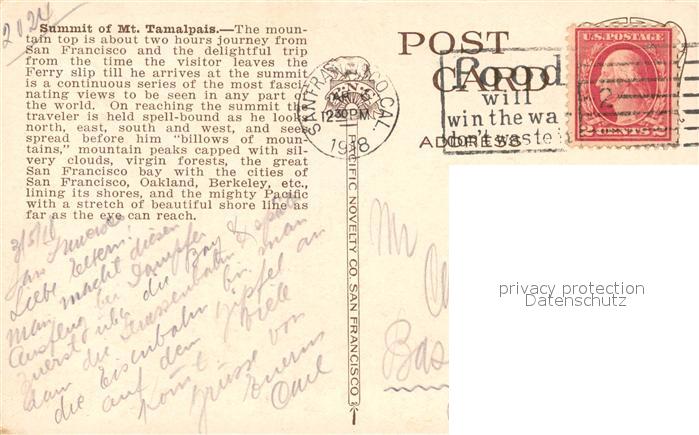 2024
Summit of Mt. Tamalpais.—The moun-
tain top is about two hours journey from
San Francisco and the delightful trip
from the time the visitor leaves the
Ferry slip till he arrives at the summit
is a continuous series of the most fasci-
nating views to be seen in any part of
the world. On reaching the summit the
traveler is held spell-bound as he looks
north, east, south and west, and sees
spread before him "billows of moun-
tains," mountain peaks capped with sil-
very clouds, virgin forests, the great
San Francisco bay with the cities of
San Francisco, Oakland, Berkeley, etc.,
lining its shores, and the mighty Pacific
with a stretch of beautiful shore line as
far as the eye can reach.
3/5/18
San Francisco
Liebe Eltern!
Man macht diesen
Ausflug per Dampfer
zuerst über die Bay &
dann die Strassenbahn
die Eisenbahn bis man
auf dem Gipfel an
kommt. Viele
Grüsse von
Eurem
Carl
PACIFIC NOVELTY CO. SAN FRANCISCO
POST
CARD
ADDRESS
SAN FRANCISCO, CAL.
12 30 PM
1918
Food
will
win the wa
don't waste it
U.S. POSTAGE
2 CENTS 2
Mr
Bas
privacy protection
Datenschutz